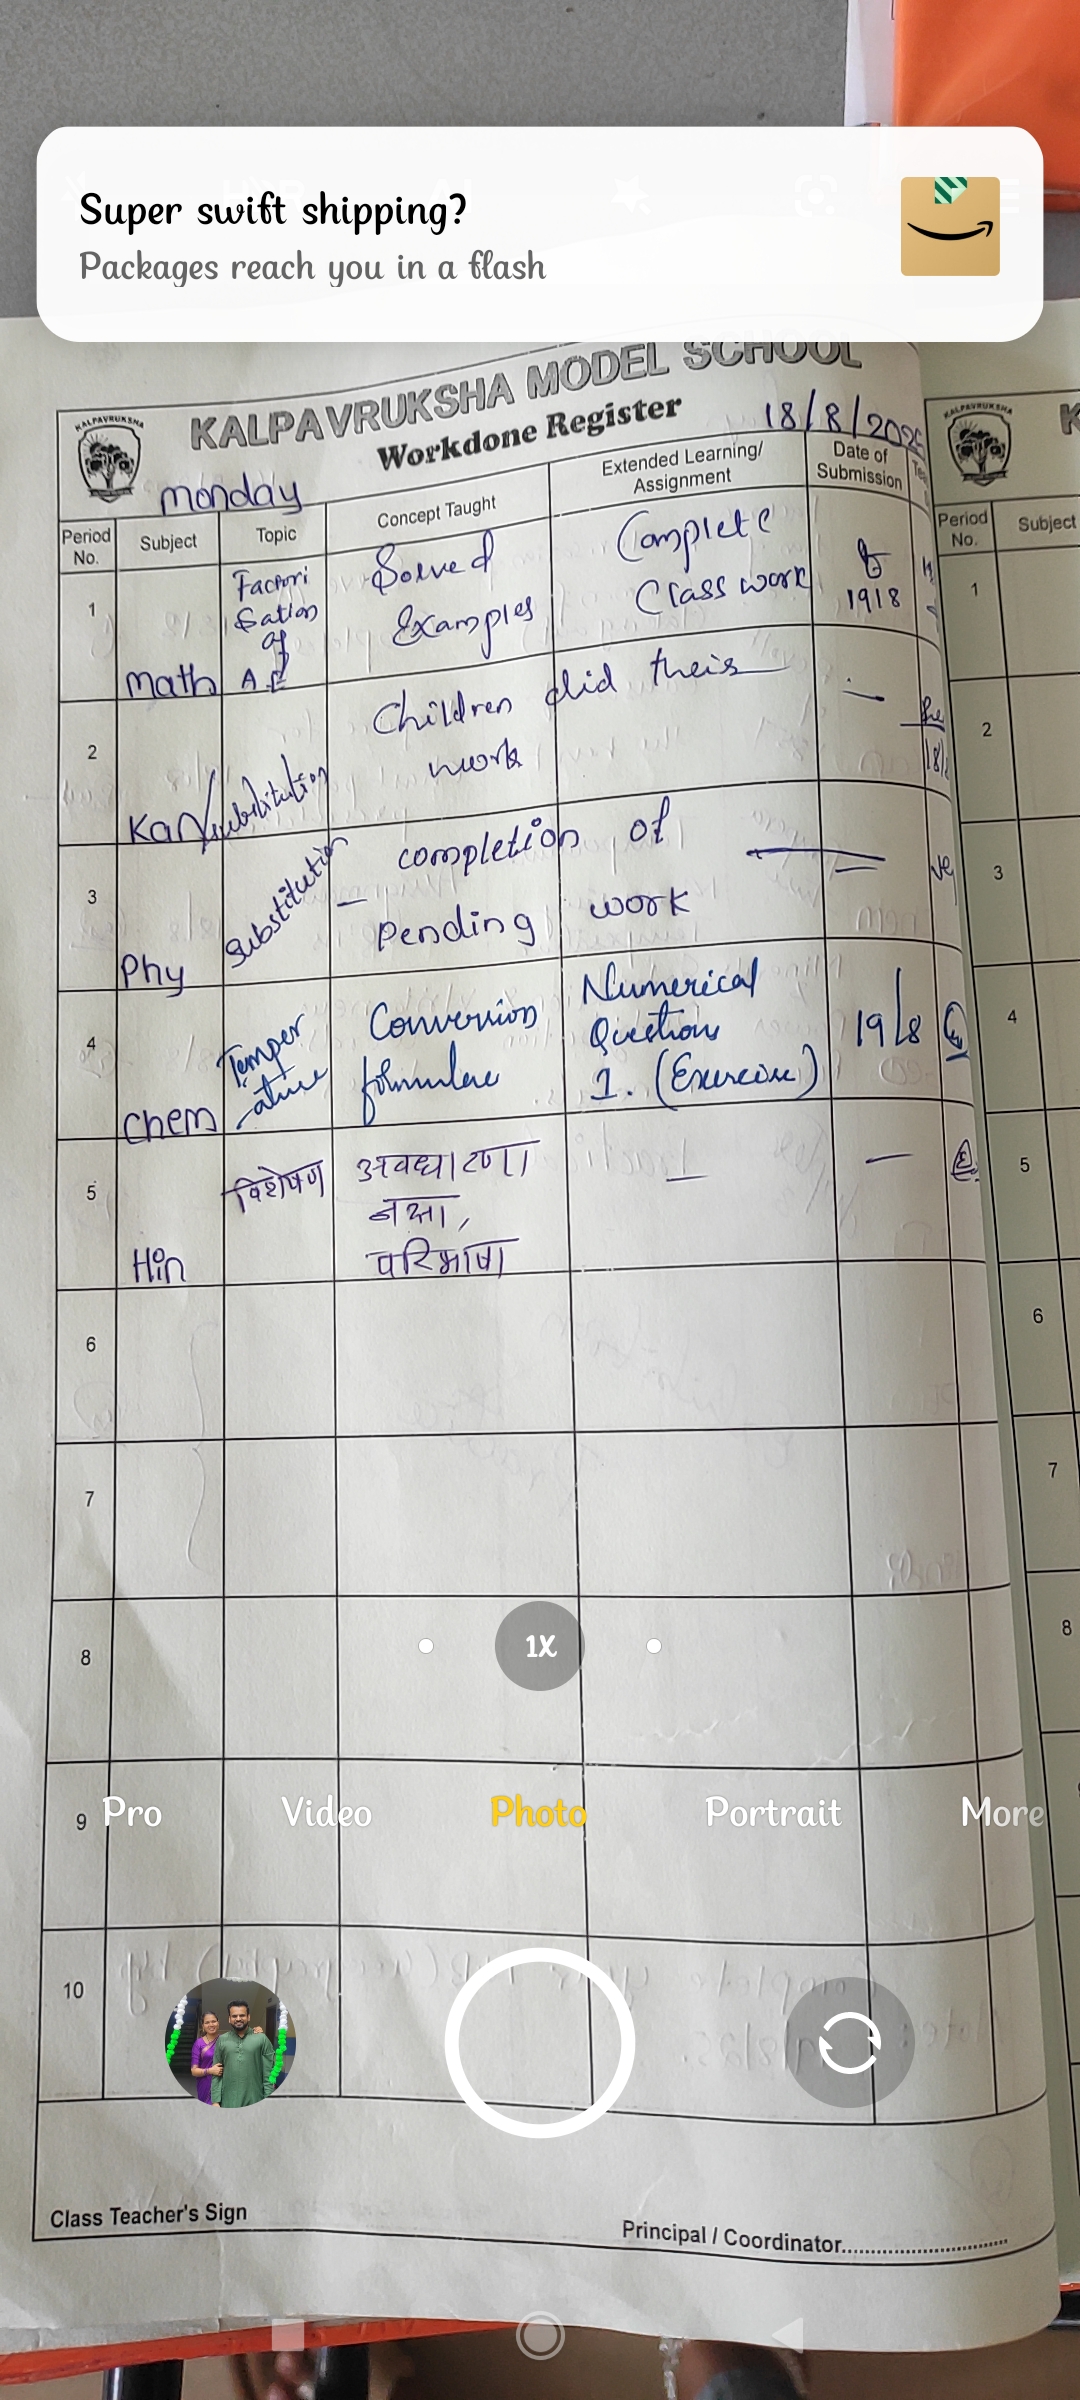 Super swift shipping?
Packages reach you in a flash
KALPAVRUKSHA MODEL SCHOOL
KALPAVRUKSHA
Workdone Register
18/8/2025
monday
Period No.
Subject
Topic
Concept Taught
Extended Learning/
Assignment
Date of
Submission
1
Math
Factori
sation
of
A.E
Solved
Examples
Complete
Class work
1918
2
Kan
substitution
Children did their
work
18/
3
Phy
substitution
completion of
Pending work
4
Chem
Temper
ature
Conversion
formulae
Numerical
Questions
1. (Exercise)
19/8
5
Hin
विशेषण
अवधारणा
नक्शा,
परिभाषा
6
7
8
9
10
1X
Pro
Video
Photo
Portrait
More
Class Teacher's Sign
Principal / Coordinator
KALPAVRUKSHA
K
Period
No.
Subject
1
2
3
4
5
6
7
8